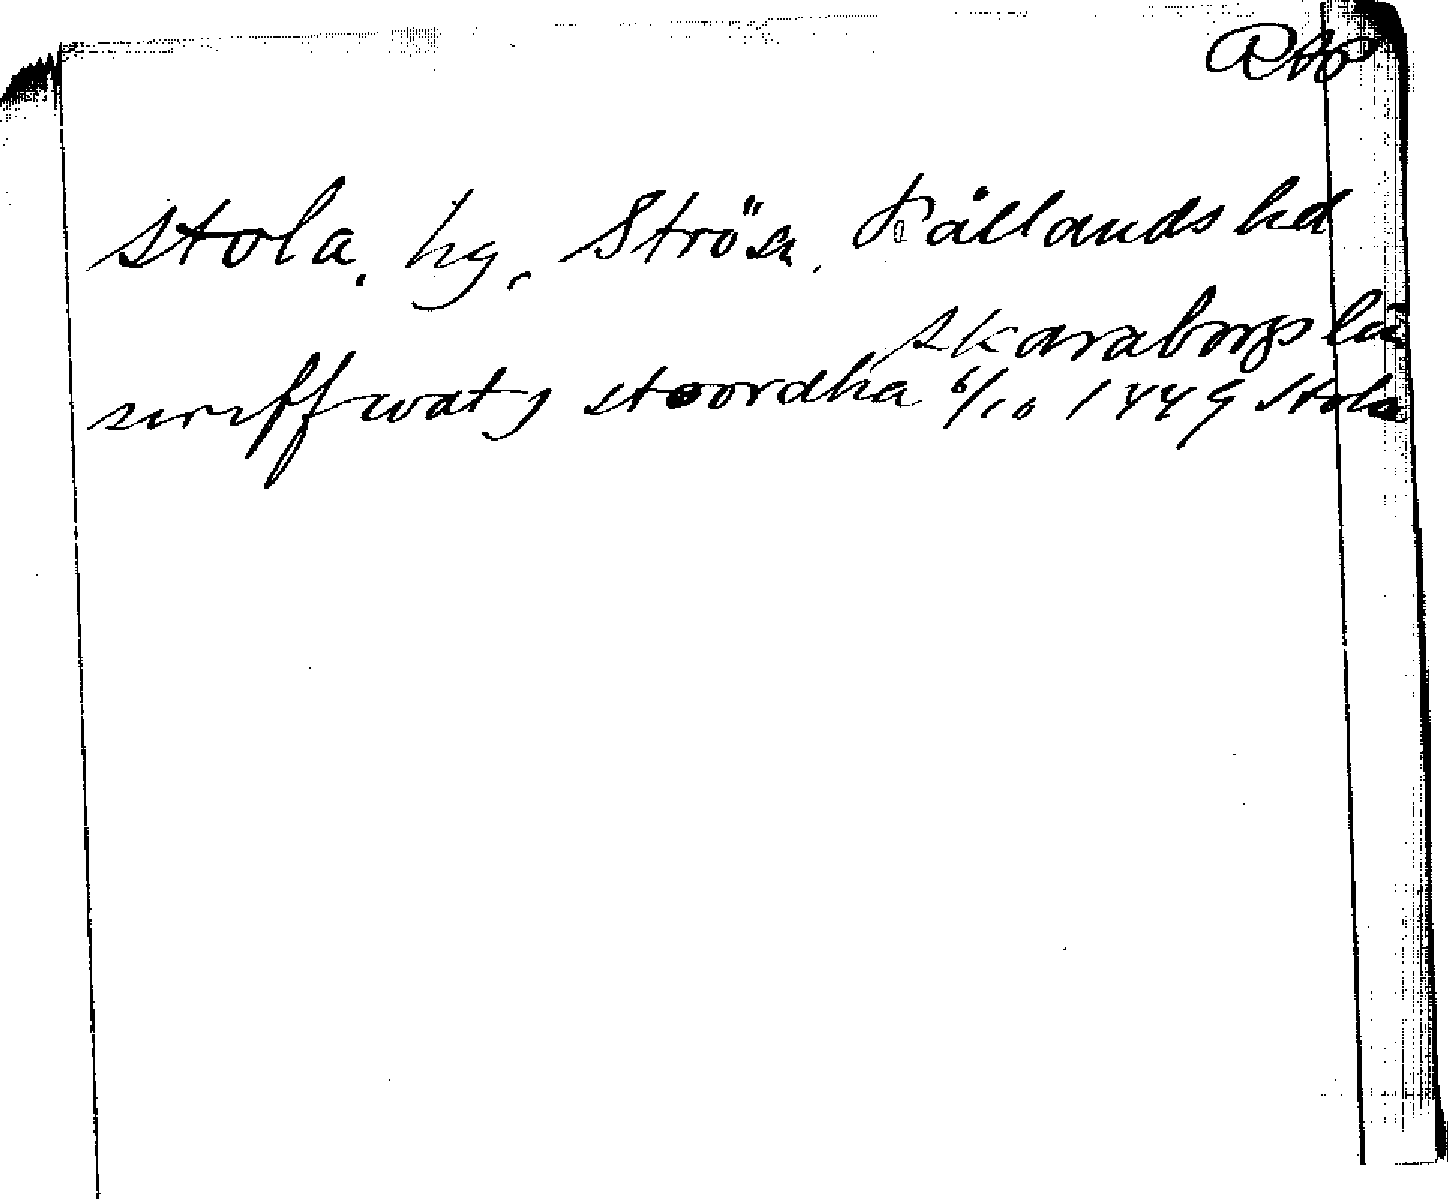 RAP
Stola, hg, Strö sn, Kållands hd
Skaraborgs län
scriffwat j stoordha 6/10 1449 Stola